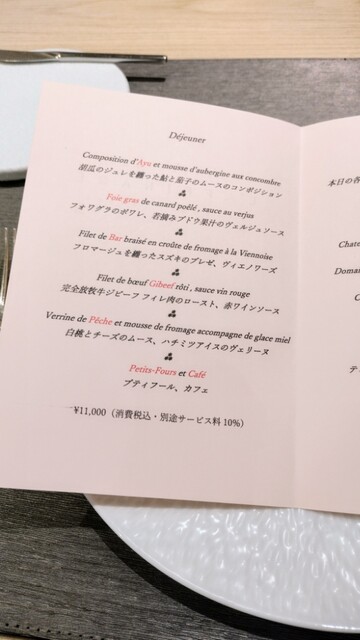 Déjeuner
Composition d'Ayu et mousse d'aubergine aux concombre
胡瓜のジュレを纏った鮎と茄子のムースのコンポジション
Foie gras de canard poêlé , sauce au verjus
フォワグラのポワレ、若摘みブドウ果汁のヴェルジュソース
Filet de Bar braisé en croûte de fromage à la Viennoise
フロマージュを纏ったスズキのブレゼ、ヴィエノワーズ
Filet de bœuf Gibeef rôti , sauce vin rouge
完全放牧牛ジビーフ フィレ肉のロースト、赤ワインソース
Verrine de Pêche et mousse de fromage accompagne de glace miel
白桃とチーズのムース、ハチミツアイスのヴェリーヌ
Petits-Fours et Café
プティフール、カフェ
¥11,000（消費税込・別途サービス料 10%）
本日の各
Chate
Doma
テ